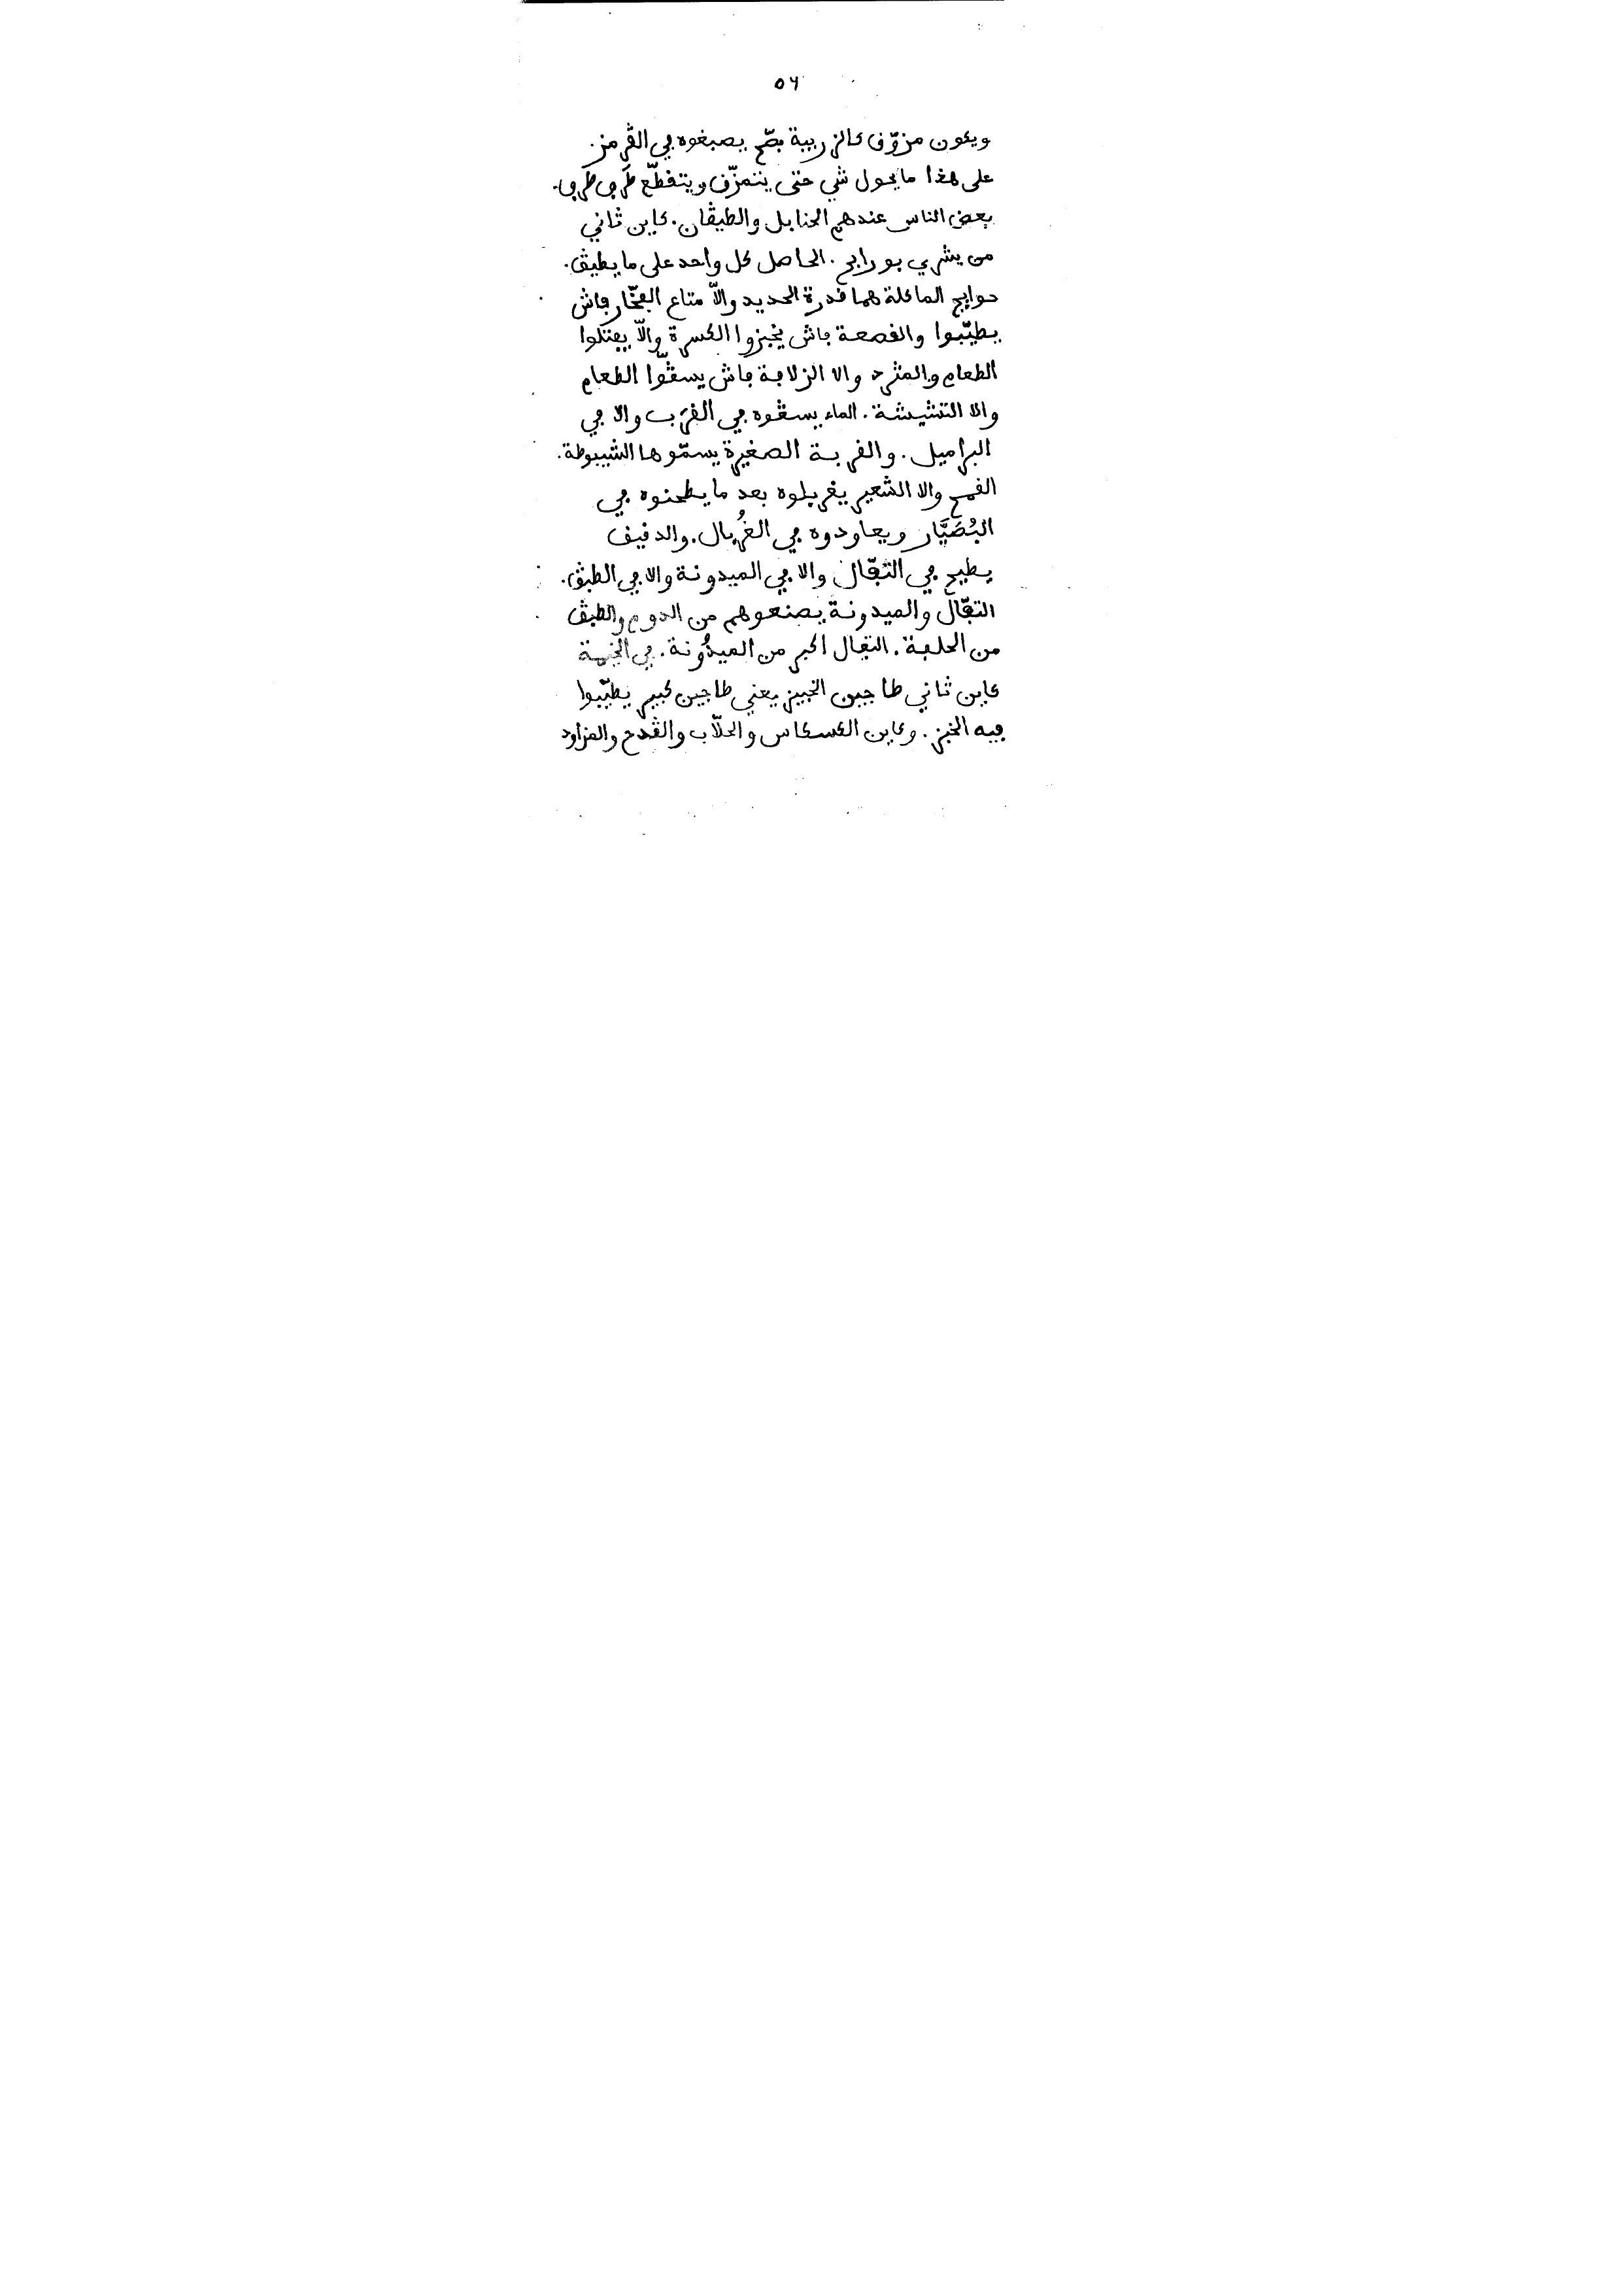 ٥٦
ويكون مزوّڧ كالزربية بصّح يصبغوه ڢي الڨرمز.
على هذا ما يحول شي حتى يتمزّڧ ويتڧطّع طرڢ طرڢ.
بعض الناس عندهم الحنابل والطيڨان. كاين ثاني
من يشري بورابح. الحاصل كل واحد على ما يطيڨ.
حوايج الماكلة هما ڧدرة الحديد والّا متاع الڢخّار باش
يطيّبوا والڧصعة باش يخبزوا الكسرة والّا يڢتلوا
الطعام والمثرد والا الزلاڢة باش يسڨّوا الطعام
والا التشيشة. الماء يسڨوه ڢي الڧرَب والا ڢي
البراميل. والڧربة الصغيرة يسمّوها الشيبوطة.
الڧمح والا الشعير يغربلوه بعد ما يطحنوه ڢي
البُصَيَّار ويعاودوه ڢي الغُربال. والدڧيڧ
يطيح ڢي التڢّال والا ڢي الميدونة والا ڢي الطبڨ.
التڢّال والميدونة يصنعوهم من الدوم والطبڨ
من الحلڢة. التڢال اكبر من الميدُونة. ڢي الخيمة
كاين ثاني طاجين الخبيز يعني طاجين كبير يطيّبوا
ڢيه الخبز. وكاين الكسكاس والحلّاب والڨدح والمزاود